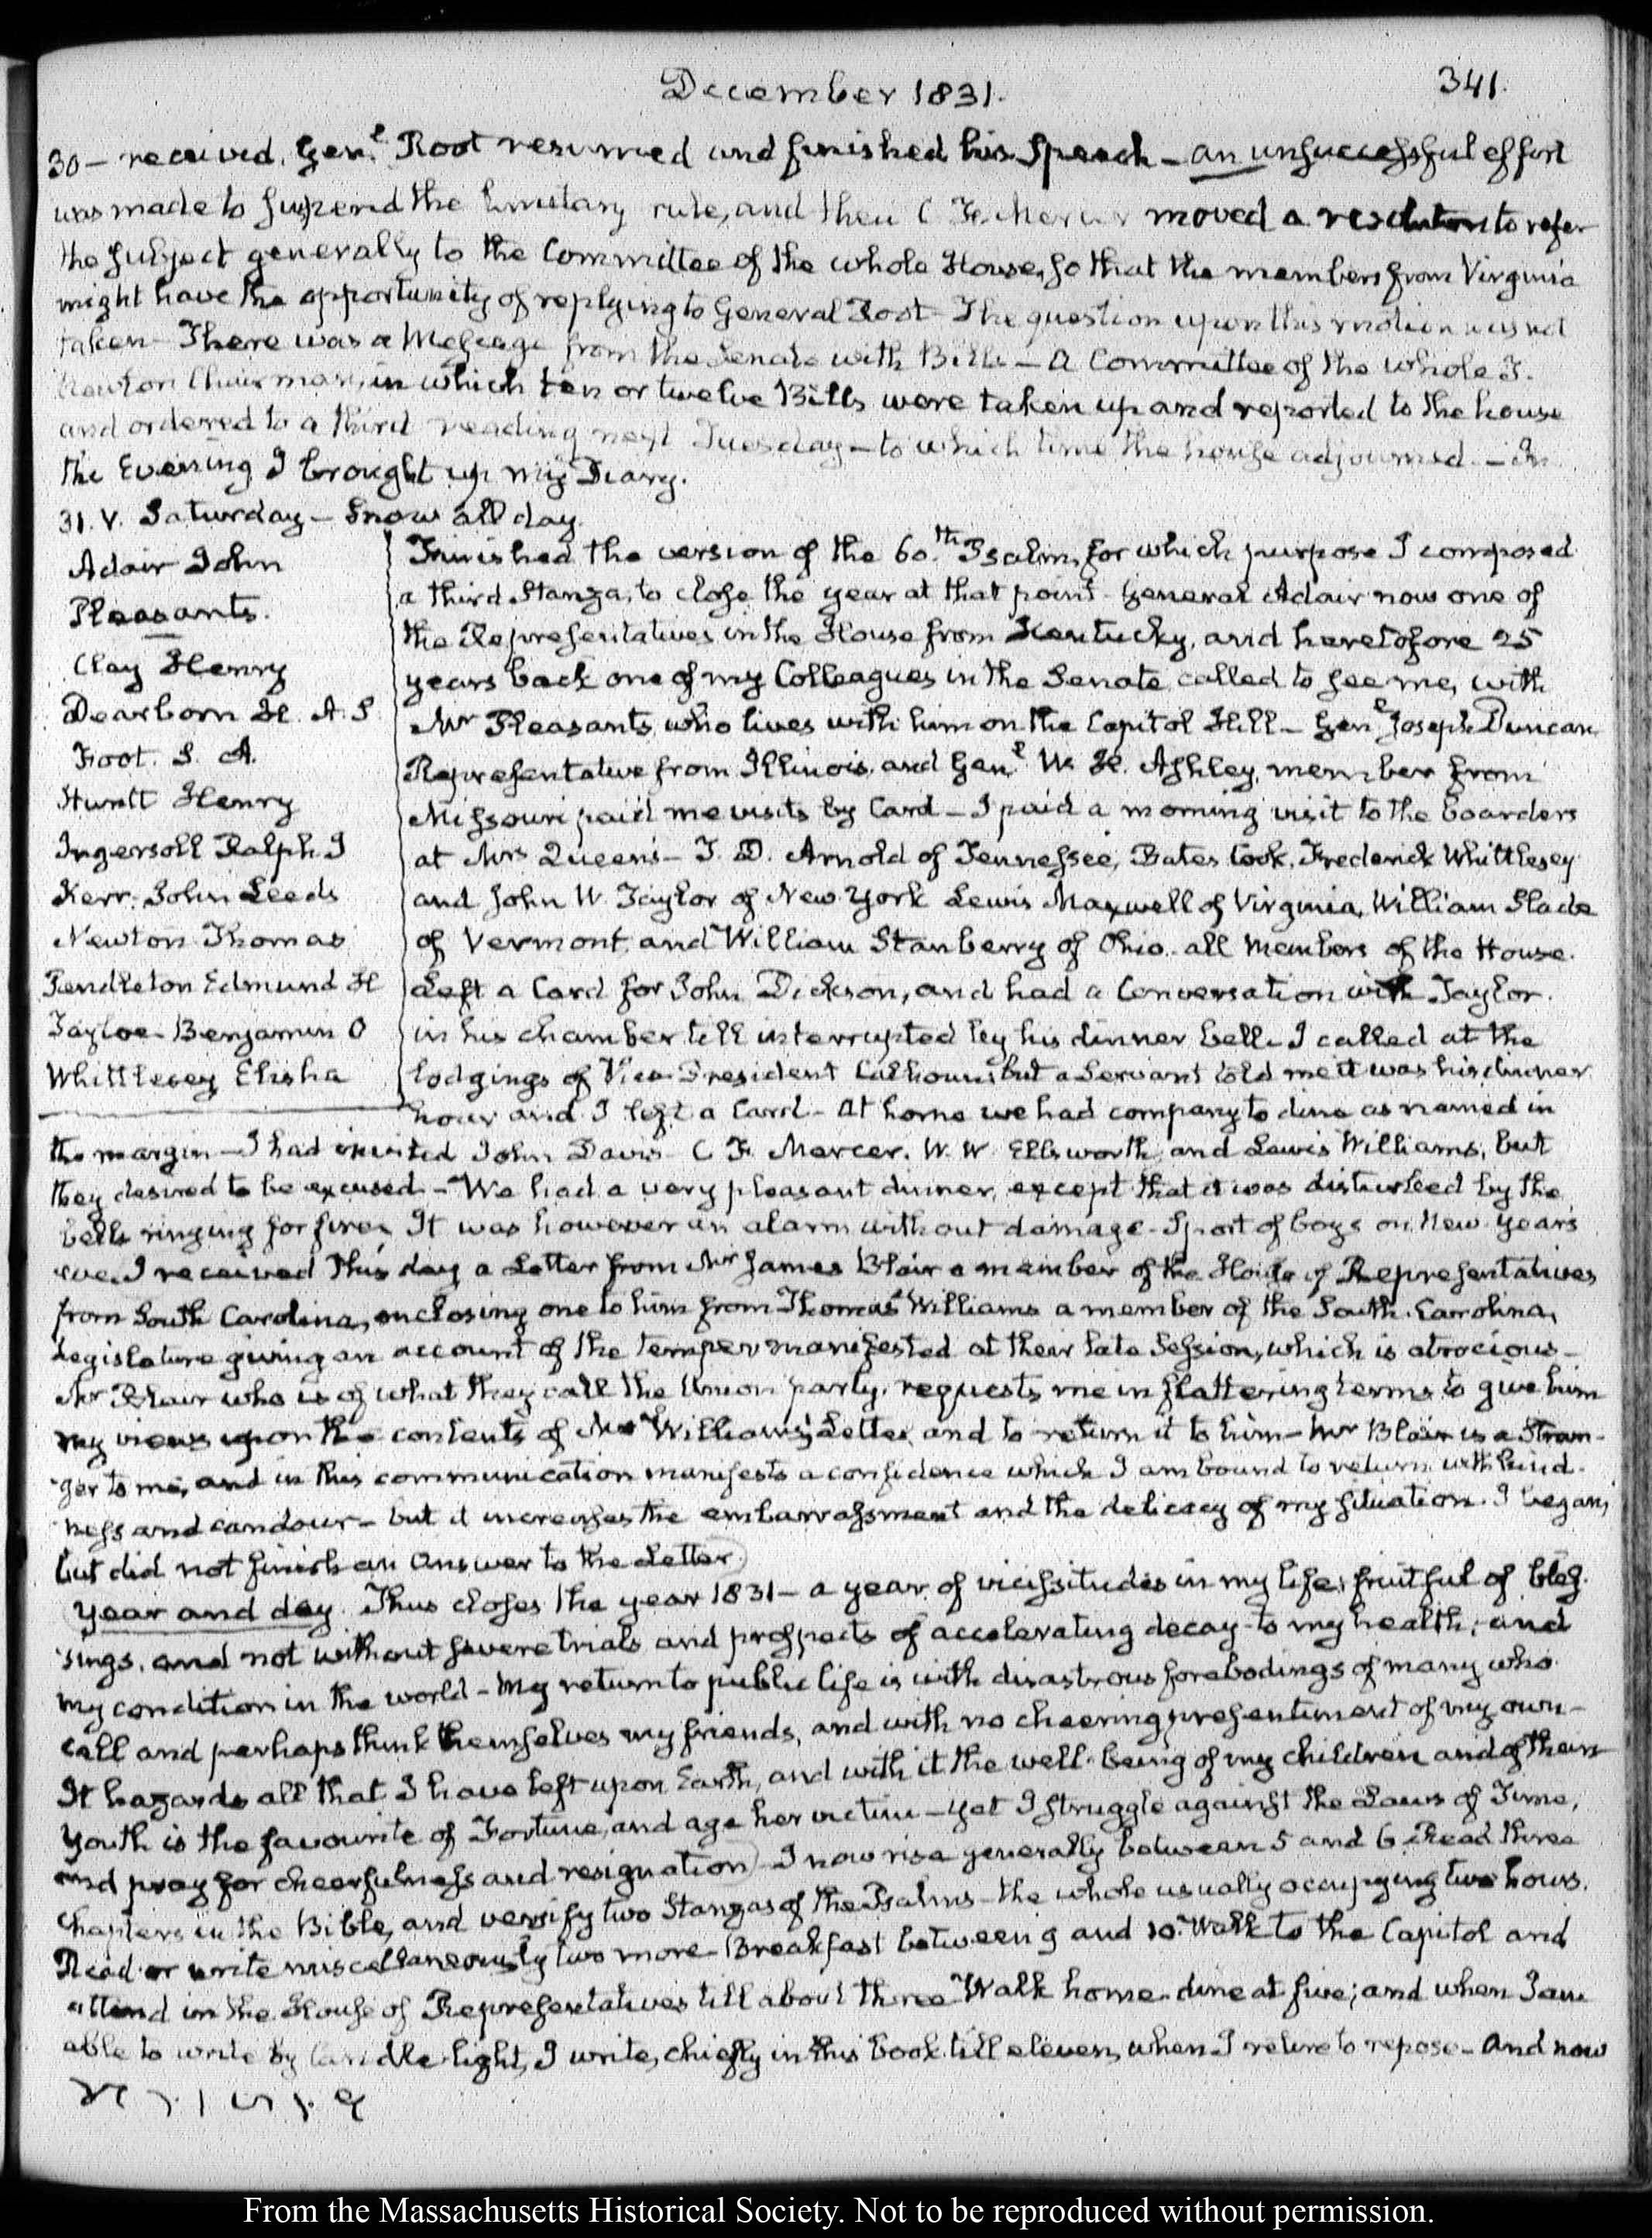 December 1831.
341.
30 – received. Gen.l Root resumed and finished his Speech – an unsuccessful effort
was made to suspend the rule, and then C F. Mercer moved a resolution to refer
the subject generally to the Committee of the whole House, so that the members from Virginia
might have the opportunity of replying to General Root – The question upon this motion was not
taken – There was a Message from the Senate with Bills – A Committee of the whole T.
Newton Chairman, in which ten or twelve Bills were taken up and reported to the house
and ordered to a third reading next Tuesday – to which time the house adjourned. – In
the Evening I brought up my Diary.
31. V. Saturday – Snow all day.
Adair John
Pleasants.
Clay Henry
Dearborn H. A. S
Foot. S. A.
Huntt Henry
Ingersoll Ralph I
Kerr. John Leeds
Newton Thomas
Pendleton Edmund H
Tayloe Benjamin O
Whittlesey Elisha
Finished the version of the 60.th Psalm, for which purpose I composed
a third Stanza, to close the year at that point – General Adair now one of
the Representatives in the House from Kentucky, and heretofore 25
years back one of my Colleagues in the Senate called to see me, with
Mr Pleasants who lives with him on the Capitol Hill – Gen.l Joseph Duncan
Representative from Illinois, and Gen.l W. H. Ashley, member from
Missouri paid me visits by Card – I paid a morning visit to the boarders
at Mrs Queen's – T. D. Arnold of Tennessee, Bates Cook, Frederick Whittlesey
and John W. Taylor of New York Lewis Maxwell of Virginia, William Slade
of Vermont, and William Stanberry of Ohio. all Members of the House.
Left a Card for John Dickson, and had a Conversation with Taylor
in his chamber till interrupted by his dinner bell – I called at the
lodgings of Vice-President Calhoun, but a Servant told me it was his dinner
hour and I left a Card – At home we had company to dine as named in
the margin – I had invited John Davis – C F. Mercer. W. W. Ellsworth, and Lewis Williams, but
they desired to be excused – We had a very pleasant dinner, except that it was disturbed by the
bells ringing for fire. It was however an alarm without damage – Sport of boys on New Year's
eve. I received this day a Letter from Mr James Blair a member of the House of Representatives
from South Carolina, enclosing one to him from Thomas Williams a member of the South. Carolina,
Legislature giving an account of the temper manifested at their late Session, which is atrocious –
Mr Blair who is of what they call the Union party, requests me in flattering terms to give him
my views upon the contents of Mr Williams's Letter, and to return it to him – Mr Blair is a Stran-
ger to me, and in this communication manifests a confidence which I am bound to return with kind-
ness and candour – but it increases the embarrassment and the delicacy of my situation. I began,
but did not finish an Answer to the Letter.
Year and day. Thus closes the year 1831 – a year of vicissitudes in my life, fruitful of bles-
sings, and not without severe trials and prospects of accelerating decay to my health, and
my condition in the world – My return to public life is with disastrous forebodings of many who
call and perhaps think themselves my friends, and with no cheering presentiment of my own –
It hazards all that I have left upon Earth, and with it the well-being of my children and of theirs
Youth is the favourite of Fortune, and age her victim – Yet I struggle against the Laws of Time,
and pray for cheerfulness and resignation – I now rise generally between 5 and 6 – Read three
Chapters in the Bible, and versify two Stanzas of the Psalms – the whole usually occupying two hours.
Read or write miscellaneously two more – Breakfast between 9 and 10. Walk to the Capitol and
attend in the House of Representatives till about three – Walk home. dine at five; and when I am
able to write by Candle-light, I write, chiefly in this book till eleven, when I retire to repose – And now
From the Massachusetts Historical Society. Not to be reproduced without permission.